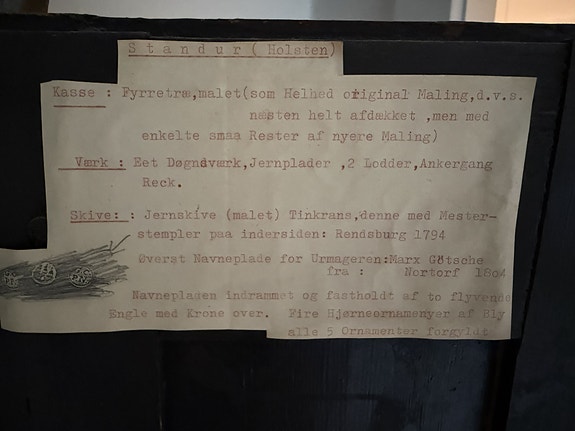 Standur (Holsten)
Kasse : Fyrretræ,malet(som Helhed original Maling,d.v.s.
næsten helt afdækket ,men med
enkelte smaa Rester af nyere Maling)
Værk : Eet Døgndværk,Jernplader ,2 Lodder,Ankergang
Reck.
Skive: : Jernskive (malet) Tinkrans,denne med Mester-
stempler paa indersiden: Rendsburg 1794
Øverst Navneplade for Urmageren:Marx Götsche
fra : Nortorf 1804
Navnepladen indrammet og fastholdt af to flyvende
Engle med Krone over. Fire Hjørneornamenyer af Bly
alle 5 Ornamenter forgyldt